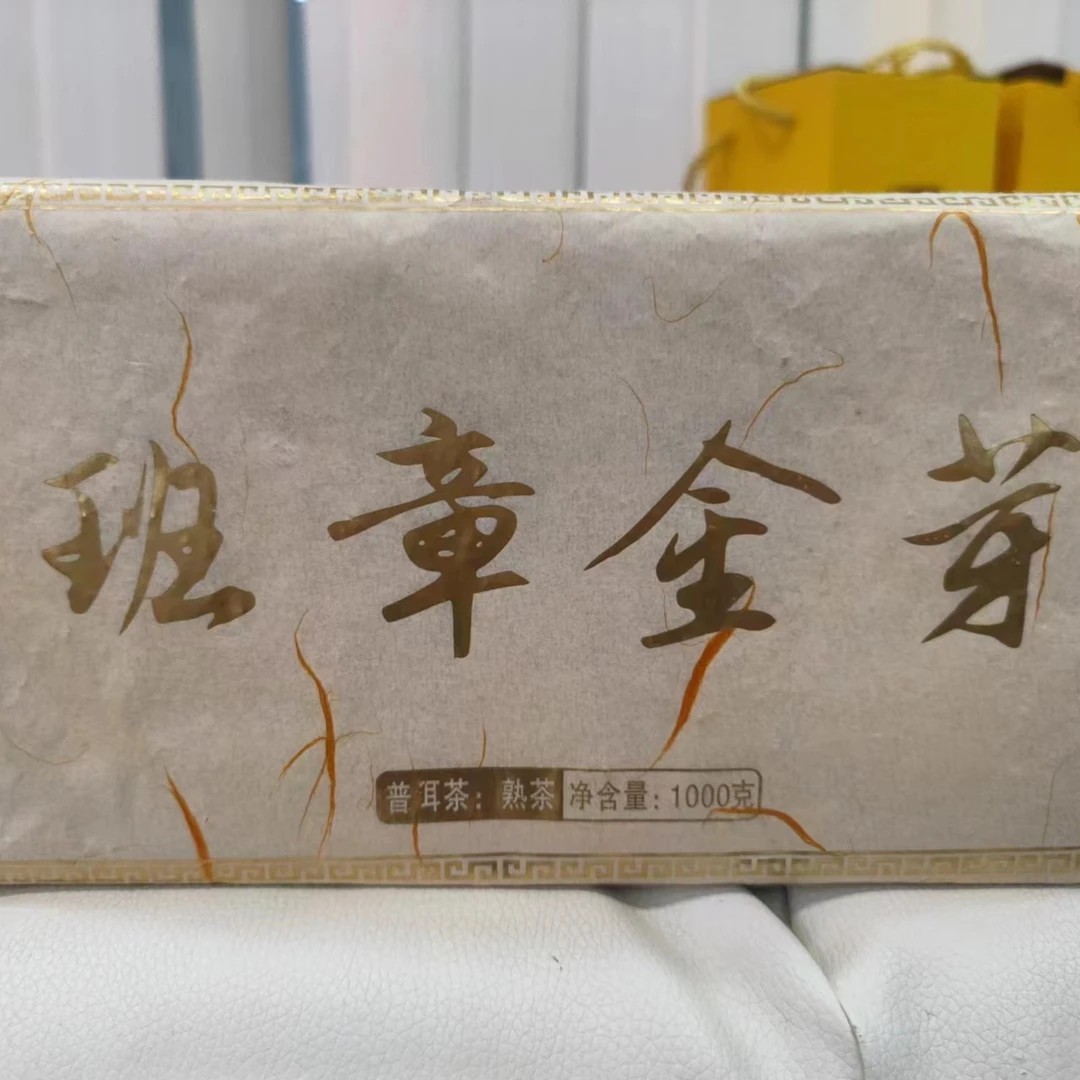 班章金芽
普洱茶：熟茶 净含量：1000克